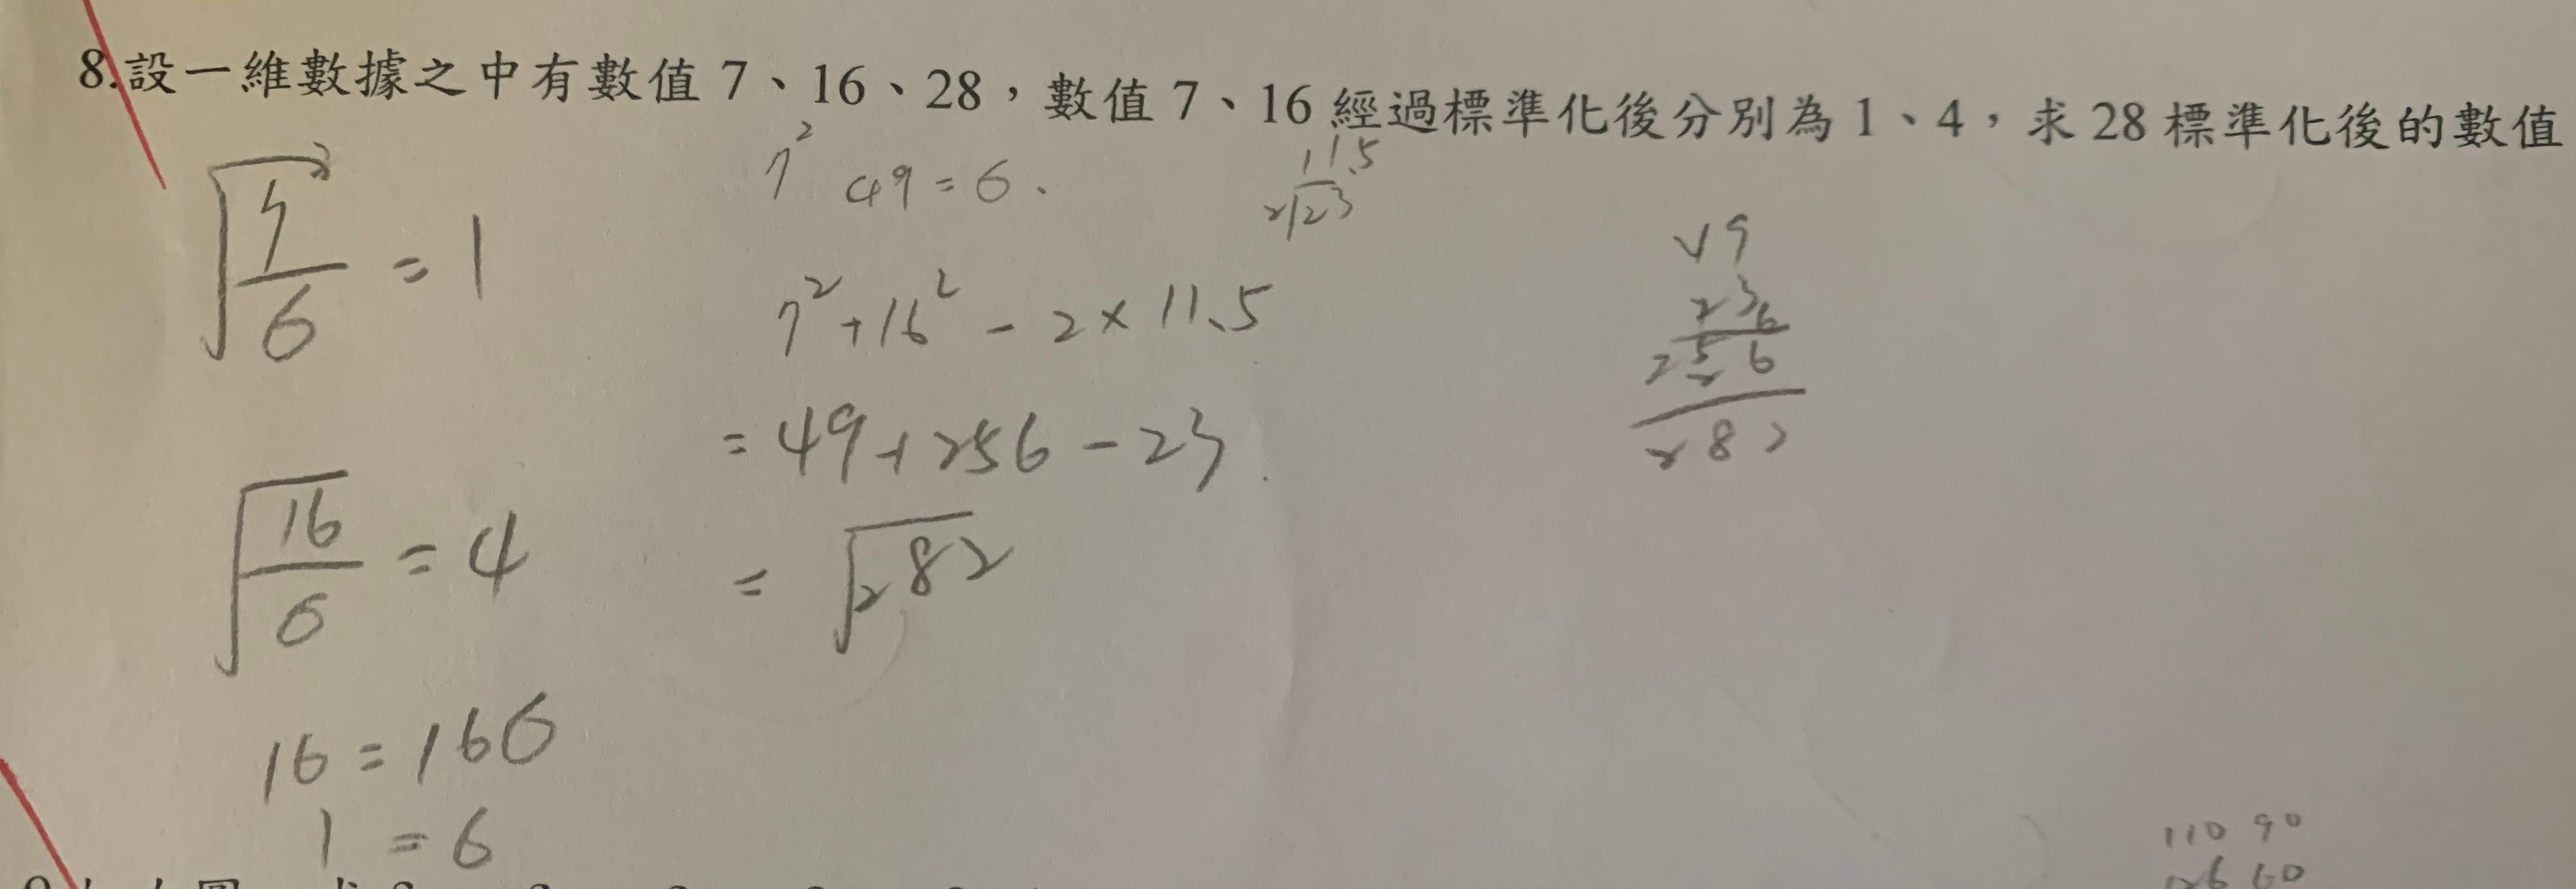 8.設一維數據之中有數值 7、16、28，數值 7、16 經過標準化後分別為 1、4，求 28 標準化後的數值
7² 49 = 6
11.5
2/23
= 1
6
7² + 16² - 2 × 11.5
= 49 + 256 - 23
= √282
√(16/6) = 4
282
16 = 166
1 = 6
110 90
60